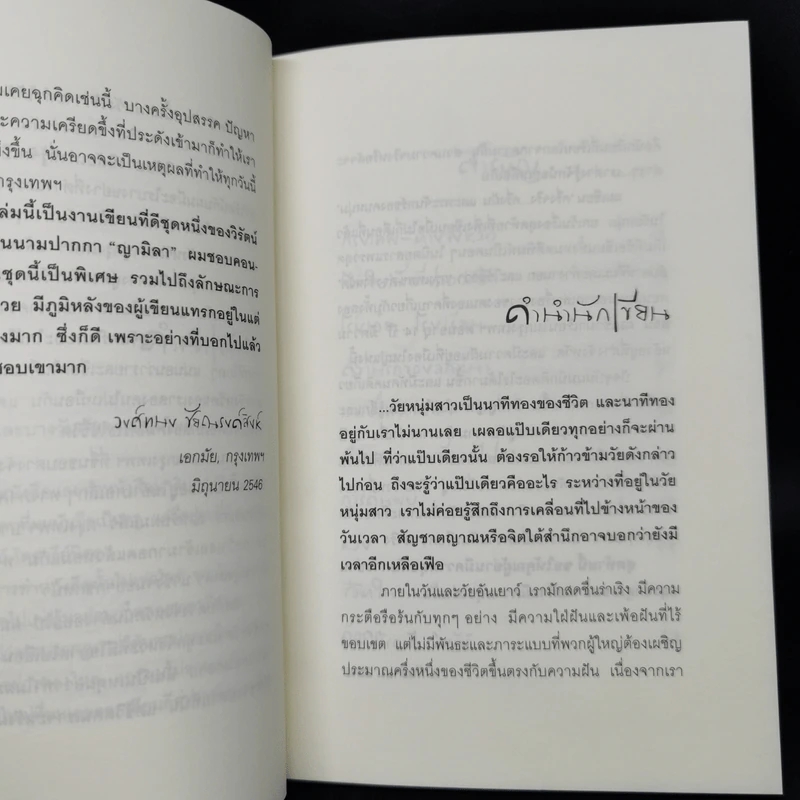 มเคยฉุกคิดเช่นนี้ บางครั้งอุปสรรค ปัญหา
ะความเครียดขึ้งที่ประดังเข้ามาก็ทำให้เรา
่งขึ้น นั่นอาจจะเป็นเหตุผลที่ทำให้ทุกวันนี้
กรุงเทพฯ
ล่มนี้เป็นงานเขียนที่ดีชุดหนึ่งของวิรัตน์
นนามปากกา “ญามิลา” ผมชอบคอน-
ชุดนี้เป็นพิเศษ รวมไปถึงลักษณะการ
วย มีภูมิหลังของผู้เขียนแทรกอยู่ในแต่
งมาก ซึ่งก็ดี เพราะอย่างที่บอกไปแล้ว
ชอบเขามาก
วงศ์ทนง ชัยณรงค์สิงห์
เอกมัย, กรุงเทพฯ
มิถุนายน 2546
คำนำนักเขียน
...วัยหนุ่มสาวเป็นนาทีทองของชีวิต และนาทีทอง
อยู่กับเราไม่นานเลย เผลอแป๊บเดียวทุกอย่างก็จะผ่าน
พ้นไป ที่ว่าแป๊บเดียวนั้น ต้องรอให้ก้าวข้ามวัยดังกล่าว
ไปก่อน ถึงจะรู้ว่าแป๊บเดียวคืออะไร ระหว่างที่อยู่ในวัย
หนุ่มสาว เราไม่ค่อยรู้สึกถึงการเคลื่อนที่ไปข้างหน้าของ
วันเวลา สัญชาตญาณหรือจิตใต้สำนึกอาจบอกว่ายังมี
เวลาอีกเหลือเฟือ
ภายในวันและวัยอันเยาว์ เรามักสดชื่นร่าเริง มีความ
กระตือรือร้นกับทุกๆ อย่าง มีความใฝ่ฝันและเพ้อฝันที่ไร้
ขอบเขต แต่ไม่มีพันธะและภาระแบบที่พวกผู้ใหญ่ต้องเผชิญ
ประมาณครึ่งหนึ่งของชีวิตขึ้นตรงกับความฝัน เนื่องจากเรา